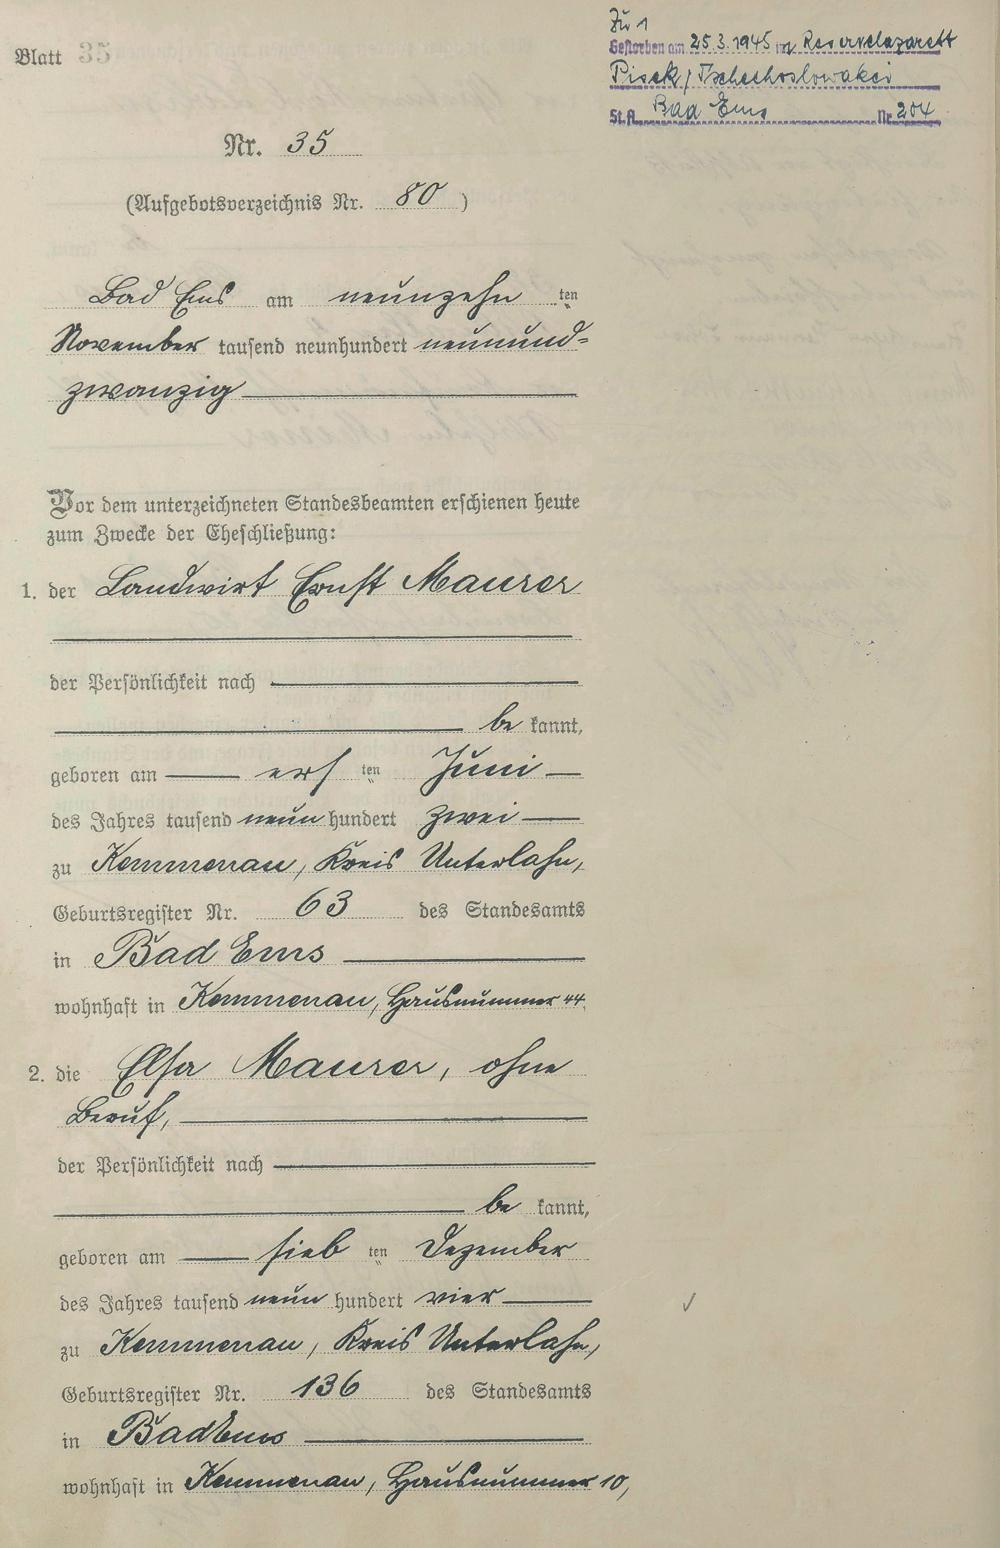 Blatt 35
Zu 1
Gestorben am 25.3.1945 in Reservelazarett
Pisek/Tschechoslowakei
St.A. Bad Ems Nr. 204
Nr. 35
(Aufgebotsverzeichnis Nr. 80)
Bad Ems am neunzehn ten
November tausend neunhundert neunund-
zwanzig
Vor dem unterzeichneten Standesbeamten erschienen heute
zum Zwecke der Eheschließung:
1. der Landwirt Ernst Maurer
der Persönlichkeit nach
be kannt,
geboren am ers ten Juni
des Jahres tausend neun hundert zwei
zu Kemmenau, Kreis Unterlahn,
Geburtsregister Nr. 63 des Standesamts
in Bad Ems
wohnhaft in Kemmenau, Hausnummer 44.
2. die Elsa Maurer, ohne
Beruf,
der Persönlichkeit nach
be kannt,
geboren am sieb ten Dezember
des Jahres tausend neun hundert vier
zu Kemmenau, Kreis Unterlahn,
Geburtsregister Nr. 136 des Standesamts
in Bad Ems
wohnhaft in Kemmenau, Hausnummer 10,